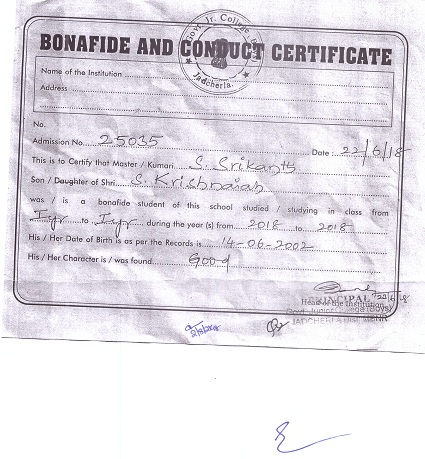 Govt. Jr. College
Jadcherla.
BONAFIDE AND CONDUCT CERTIFICATE
Name of the Institution
Address
No.
Admission No. 25035 Date : 22/6/18
This is to Certify that Master / Kumari S. Srikanth
Son / Daughter of Shri S. Krishnaiah
was / is a bonafide student of this school studied / studying in class from
I yr to I yr during the year (s) from 2018 to 2018
His / Her Date of Birth is as per the Records is 14-06-2002
His / Her Character is / was found Good
22/6/18
PRINCIPAL
Head of the Institution
Govt. Junior College (Boys)
JADCHERLA